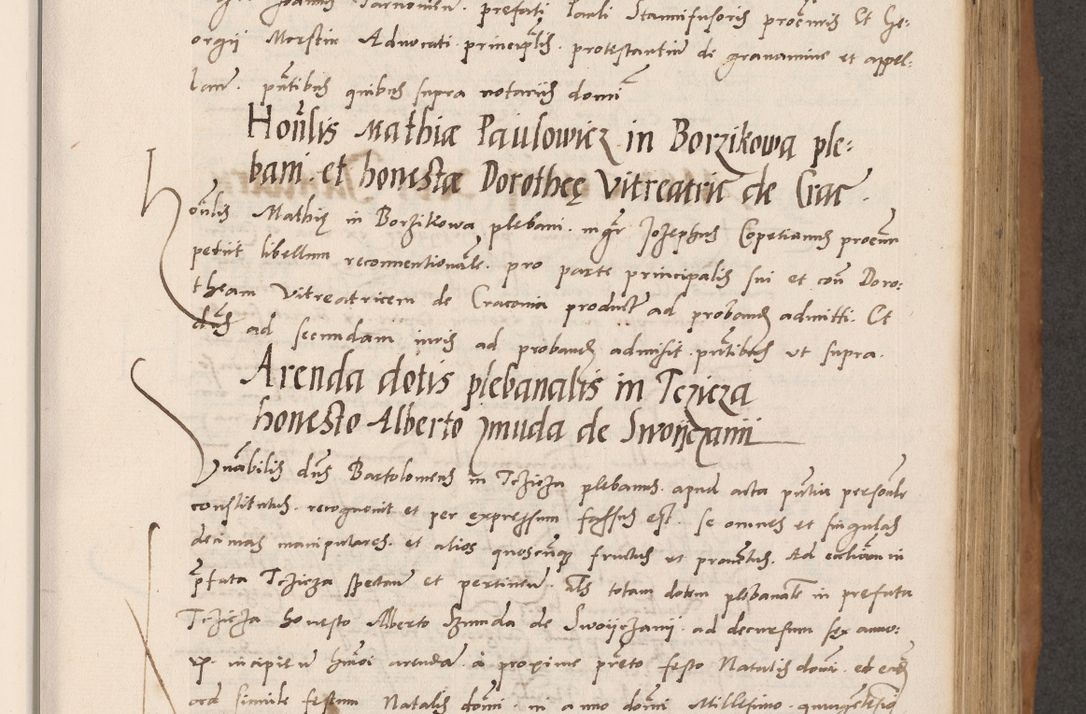 Joannis Tarnowien. prefati Pauli Stannifusoris procuris Et Ge:
orgii Morstin Advocati principlis. protestantiu de gravamine et appel:
lan. pntibus quibus supra notariis domi
Honlis Mathiæ Paulowicz in Borzikowa ple:
bani. et honestæ Dorotheę Vitreatric de Crac.
Honlis Mathię in Borzikowa plebani. mgr Jozephus Copetianus procun
petiit libellum reconventionale. pro parte principalis sui et con Doro:
theam Vitreatricem de Craconia product ad proband admitti. Et
dns ad secundam iuris ad proband admisit. pntibus ut supra.
Arenda dotis plebanalis in Tczicza
honesto Alberto Zmuda de Swoijczani
Vnabilis dns Bartolomeus in Tczicza plebanus. apud acta pntia personale
constitutus. recognovit et per expressum fassus est. se omnes et singulas
decimas manipulares. et alios quoscunq fructus et provetus. Ad eccliam in
pfata Tczicza spectan et pertinen. Als totam dotem plebanale in prefata
Tczicza honesto Alberto Szmuda de Swoijczanij. ad decursum sex anno:
rum. incipien hmoi arendam. à proxime prito festo Natalis domi. et
ad simile festum Natalis domi. in anno domi Millesimo quingentesio